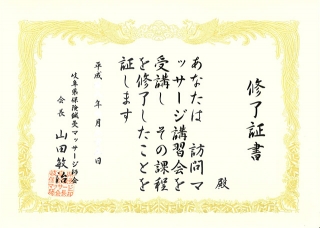 修了証書
殿
あなたは 訪問マ
ッサージ講習会を
受講し その課程
を修了したことを
証します
平成 年 月 日
岐阜県保険鍼灸マッサージ師会
会長 山田敏治